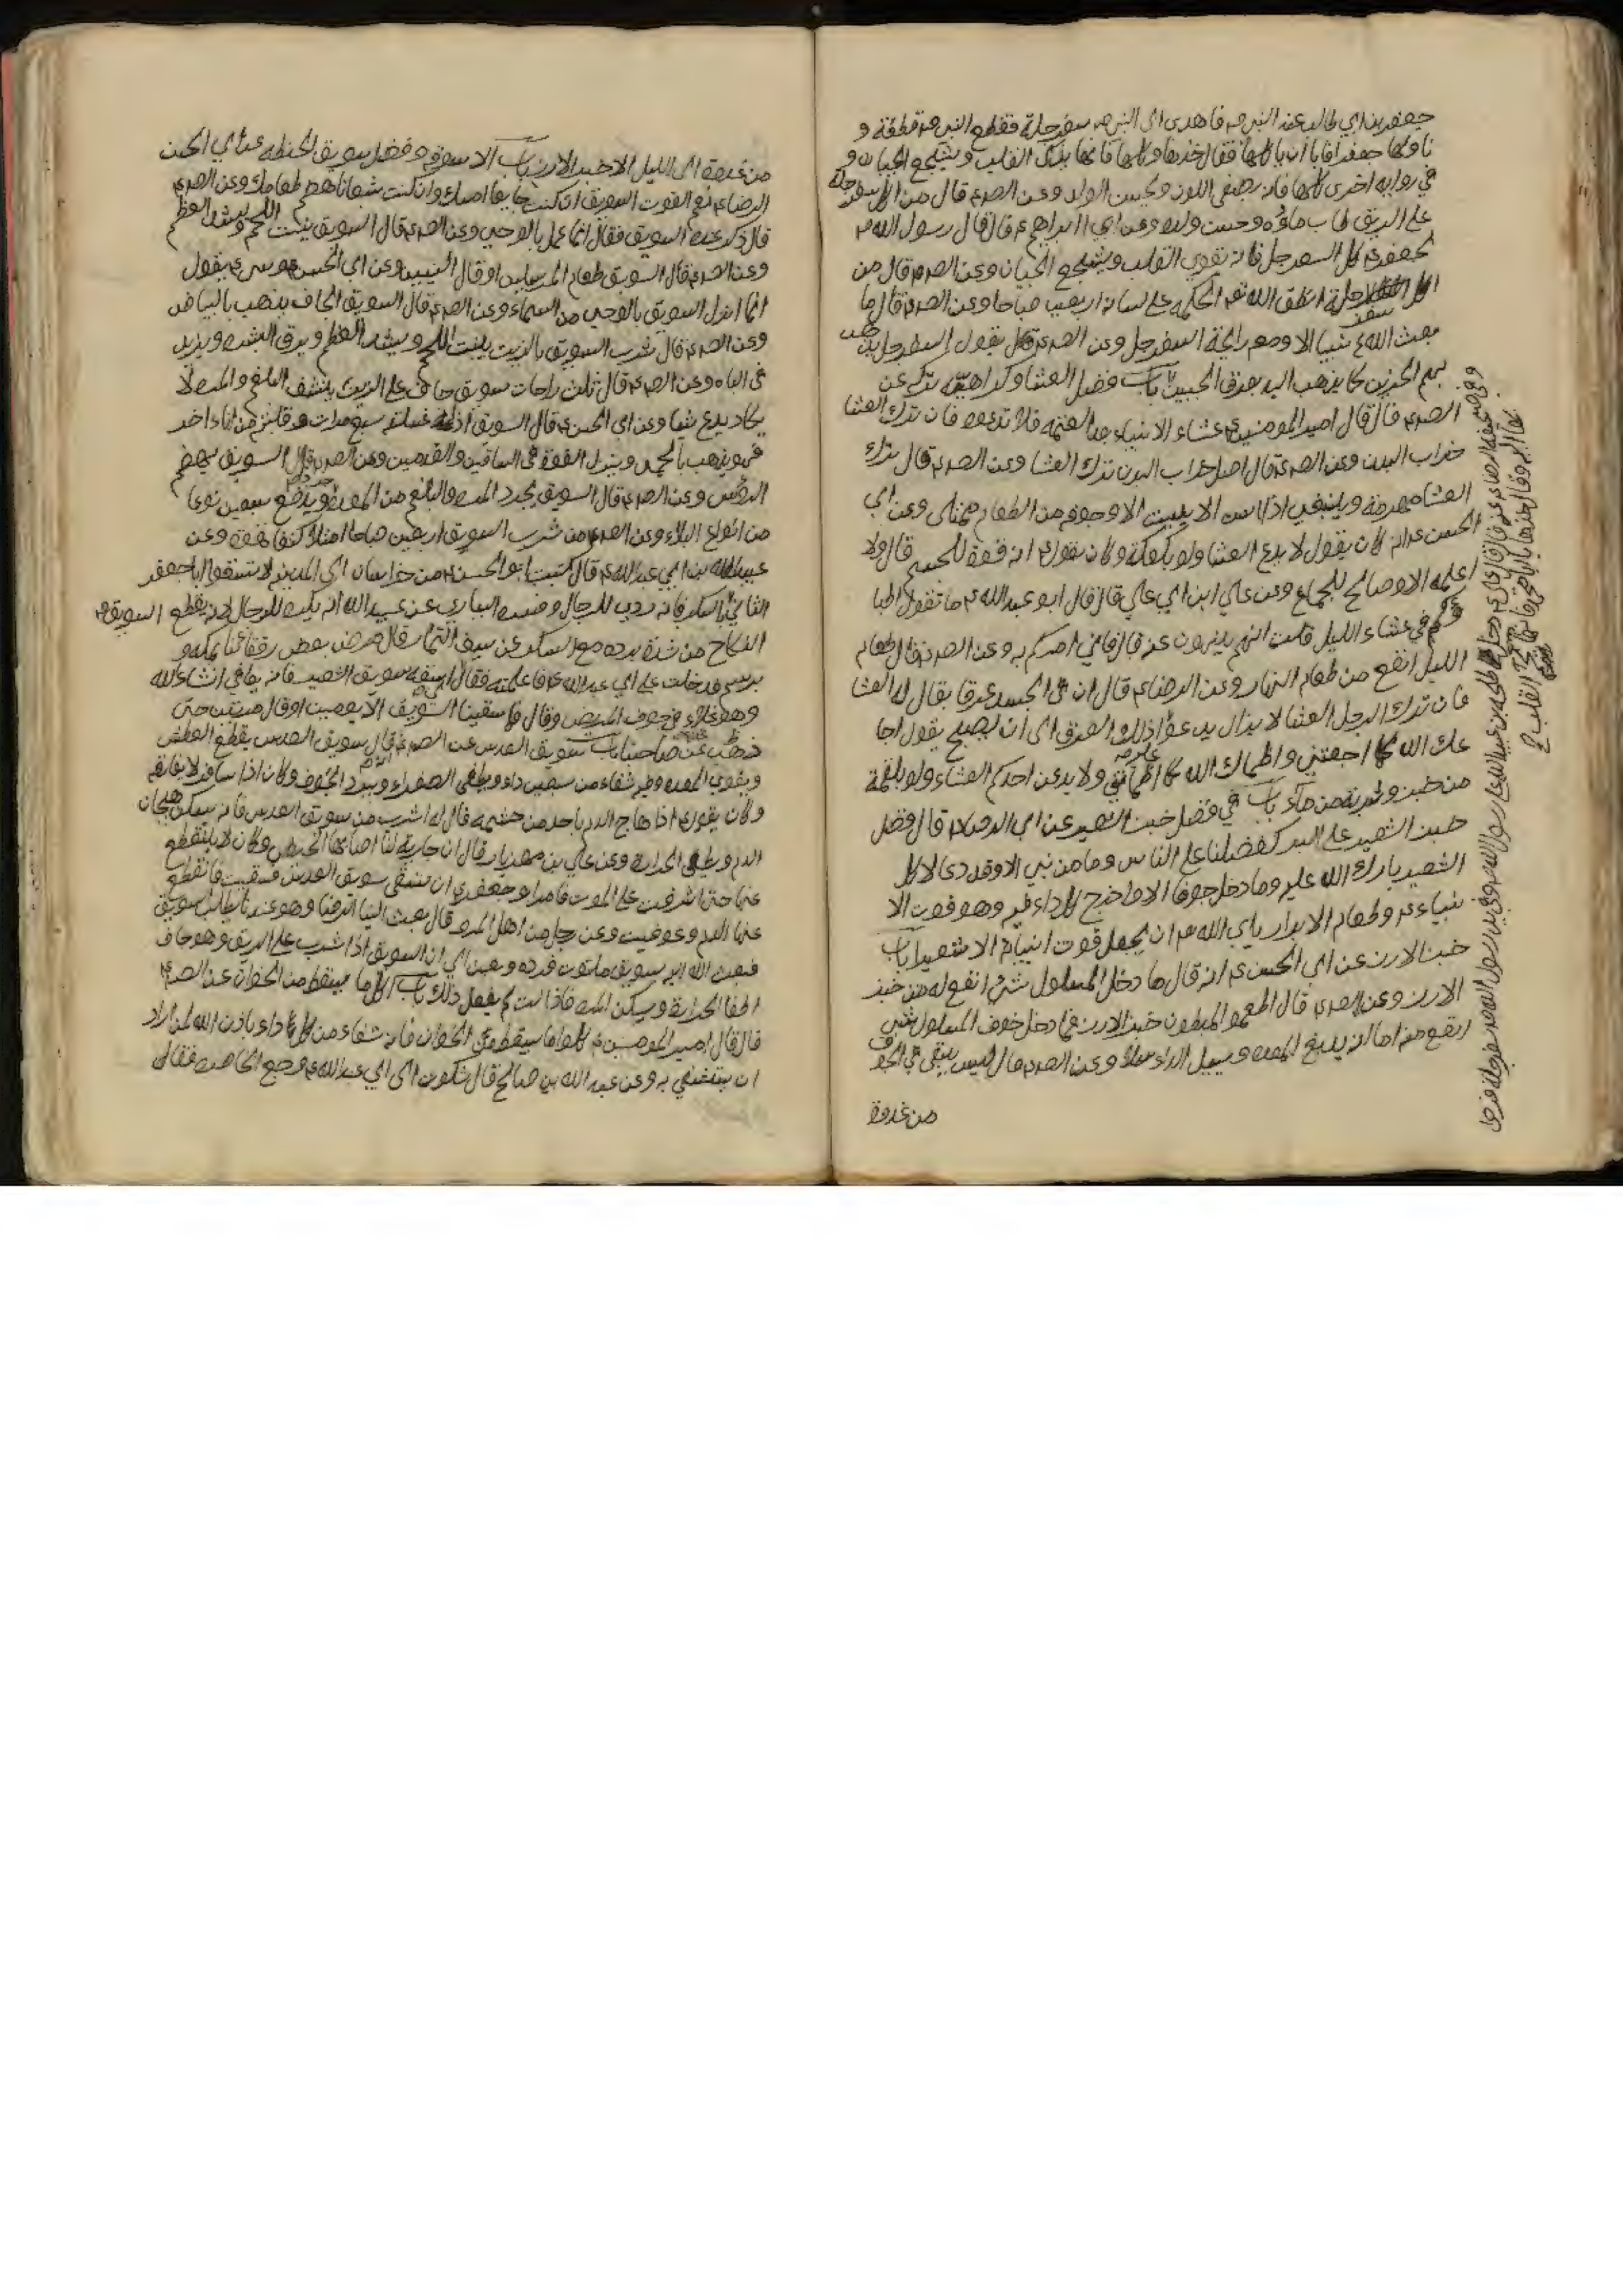 جعفر بن ابي طالب عند النبي ص فاهدي الى النبي ص سفرجلة فقطع النبي ص قطعة و
ناولها جعفرا فابا ان ياكلها فقال خذها وكلها فانها تذكي القلب وتشجع الجبان و
في رواية اخرى كلها فانه يصفي اللون ويحسن الولد وعن الص ع قال من اكل سفرجلة
على الريق طاب ماؤه وحسن ولده وعن ابي ابراهيم ع قال قال رسول الله ص
لجعفر كل السفرجل فانه يقوي القلب ويشجع الجبان وعن الص ع قال من
اكل سفرجلة انطق الله الحكمة على لسانه اربعين صباحا وعن الص ع قال ما
بعث الله نبيا الا ومعه رايحة السفرجل وعن الص ع قال يقول السفرجل يذهب
بهم الحزين كما يذهب اليد بعرق الجبين باب فضل العشا وكراهية تركه عن
الص ع قال قال امير المومنين ع عشاء الانبياء بعد العتمة فلا تدعوه فان ترك العشا
خراب البدن وعن الص ع قال اصل خراب البدن ترك العشا وعن الص ع قال ترك
العشا مهرمة وينبغي اذا اسن الا يبيت الا وجوفه من الطعام ممتلى وعن ابي
الحسن ع انه كان يقول لا يدع العشا ولو بكعكة وكان يقول انه قوة للجسم قال ولا
اعلمه الا وصالح للجماع وعن علي ابن ابي علي قال قال ابو عبد الله ع ما تقول اطبا
وكم في عشاء الليل قلت انهم ينهون عنه قال فاني امركم به وعن الص ع قال طعام
الليل انفع من طعام النهار وعن الرضا ع قال ان في الجسد عرقا يقال له العشا
فان ترك الرجل العشا لا يزال يدعو اذلك العرق الى ان يصبح يقول اجا
عك الله كما اجعتني واظماك الله كما اظماتني ولا يدعن احدكم العشاء ولو بلقمة
من خبز وشربة من ماء باب في فضل خبز الشعير عن ابي الحسن قال فضل
خبز الشعير على البر كفضلنا على الناس وما من نبي الا وقد دعا لاكل
الشعير بارك الله عليه وما دخل جوفا الا واخرج كل داء فيه وهو قوت الا
نبياء ع وطعام الابرار يابى الله ان يجعل قوت انبيائه الا شعيرا باب
خبز الارز عن ابي الحسن ع انه قال ما دخل المسلول شئ انفع له من خبز
الارز وعن الص ع قال اطعموا المبطون خبز الارز فما دخل جوف المسلول شئ
انفع منه اما انه يدبغ المعده ويسيل الداء سلا وعن الص ع قال ليس يبقى في الجوف
من غدوة
من غدوة الى الليل الا خبز الارز باب الاسوقة وفضل سويق الحنطه عن ابي الحسن
الرضا ع نعم القوت السويق ان كنت جايعا امسك وان كنت شبعانا هضم طعامك وعن الص ع
قال ذكر عنده السويق فقال انما عمل بالوحي وعن الص ع قال السويق ينبت اللحم ويشد العظم
وعن الص ع قال السويق طعام المرسلين او قال النبيين وعن ابي الحسن موسى ع يقول
انما انزل السويق بالوحي من السماء وعن الص ع قال السويق الجاف يذهب بالبياض
وعن الص ع قال شرب السويق بالزيت ينبت اللحم ويشد العظم ويرق البشره ويزيد
في الباه وعن الص ع قال ثلث راحات سويق جاف على الريق ينشف البلغم والمره لا
يكاد يدع شيا وعن ابي الحسن ع قال السويق اذا غسلته سبع مرات وقلبته من اناء اخر
فهو يذهب بالحمى وينزل القوة في الساقين والقدمين وعن الص ع قال السويق يهضم
الرؤس وعن الص ع قال السويق يجرد المره والبلغم من المعدة ويدفع سبعين نوعا
من انواع البلاء وعن الص ع من شرب السويق اربعين صباحا امتلا كتفاه قوة وعن
عبيد الله بن ابي عبد الله ع قال كتب ابو الحسن ع من خراسان الى المدينة لا تسقوا ابا جعفر
الثاني بالسكر فانه ردي للرجال وفسره السياري عن عبيد الله انه يكره للرجال لانه يقطع السويق
النكاح من شدة برده مع السكر عن سيف التمار قال مرض بعض رفقائنا بمكة و
برسم فدخلت على ابي عبد الله ع فاعلمته فقال اسقه سويق الشعير فانه يعافى انشاء الله
وهو غذاء في جوف المريض وقال فما سقينا السويق الا يومين او قال مرتين حتى
عوفي صاحبنا باب سويق العدس عن الص ع قال سويق العدس يقطع العطش
ويقوي المعده وفيه شفاء من سبعين داء ويطفى الصفراء ويبرد الجوف وكان اذا سافر لا يفارقه
وكان يقول ع اذا هاج الدم باحد من حشمه قال له اشرب من سويق العدس فانه يسكن هيجان
الدم ويطفى الحرارة وعن علي بن مهزيار قال ان جارية لنا اصابها الحيض وكان لا ينقطع
عنها حتى اشرفت على الموت فامر ابو جعفر ع ان تسقى سويق العدس فسقيت فانقطع
عنها الدم وعوفيت وعن رجل من اهل المرو قال بعث الينا الرضا وهو عندنا يطلب السويق
فبعث الله اليه سويق ملتوت فرده وبعث الي ان السويق اذا شرب على الريق وهو جاف
اطفا الحرارة وسكن المره فاذا لت لم يفعل ذلك باب اكل ما يسقط من الخوان عن الص ع
قال قال امير المومنين ع كلوا ما يسقط من الخوان فانه شفاء من كل داء باذن الله لمن اراد
ان يستشفي به وعن عبد الله بن صالح قال شكوت الى ابي عبد الله ع وجع الخاصرة فقال